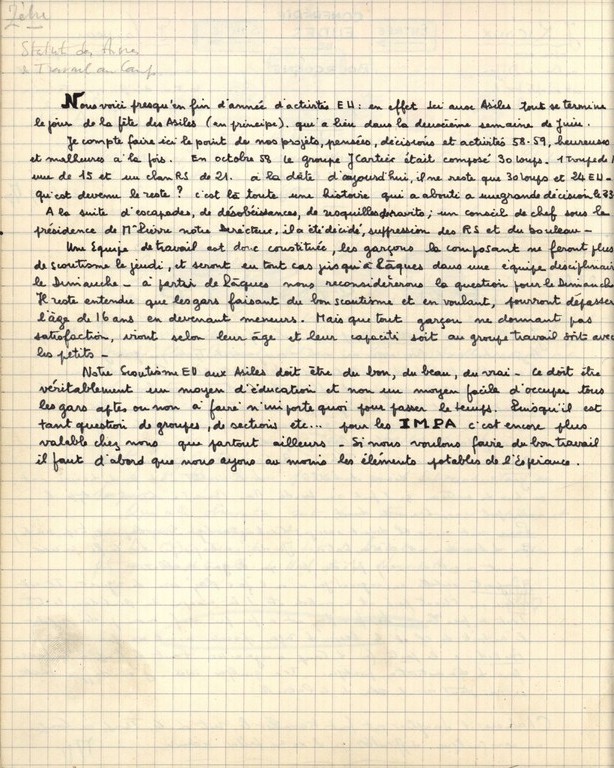 Zèbre
Statut des Aînés
& Travail au Camp
Nous voici presqu'en fin d'année d'activités EU : en effet ici aux Asiles tout se termine
le jour de la fête des Asiles (en principe). qui a lieu dans la deuxième semaine de Juin.
Je compte faire ici le point de nos projets, pensées, décisions et activités 58-59, heureuses
et malheures à la fois. En octobre 58 le groupe J Cartier était composé 30 loups - 1 Troupe de
une de 15 et un clan RS de 21. à la dâte d'aujourd'hui, il ne reste que 30 loups et 24 EU -
qu'est devenu le reste ? c'est là toute une histoire qui a abouti a une grande décision le 23
A la suite d'escapades, de désobéissances, de resquilles de ravito ; un conseil de chef sous la
présidence de Mr Pierre notre Directeur, il a été décidé, suppression des RS et du bouleau -
Une Equipe de travail est donc constituée, les garçons la composant ne feront plus
de Scoutisme le jeudi, et seront en tout cas jusqu'à Pâques dans une équipe disciplinair
le Dimanche - à partir de Pâques nous reconsidérerons la question pour le Dimanche
Il reste entendue que les gars faisant du bon scoutisme et en voulant, pourront dépasser
l'âge de 16 ans en devenant meneurs. Mais que tout garçon ne donnant pas
satisfaction, viront selon leur âge et leur capacité soit au groupe travail soit avec
les petits -
Notre Scoutisme EU aux Asiles doit être du bon, du beau, du vrai - ce doit être
véritablement un moyen d'éducation et non un moyen facile d'occuper tous
les gars aptes ou non à faire n'importe quoi pour passer le temps. Puisqu'il est
tant question de groupes, de sections etc... pour les IMPA c'est encore plus
valable chez nous que partout ailleurs - Si nous voulons faire du bon travail
il faut d'abord que nous ayons au moins les éléments potables de l'Espérance.